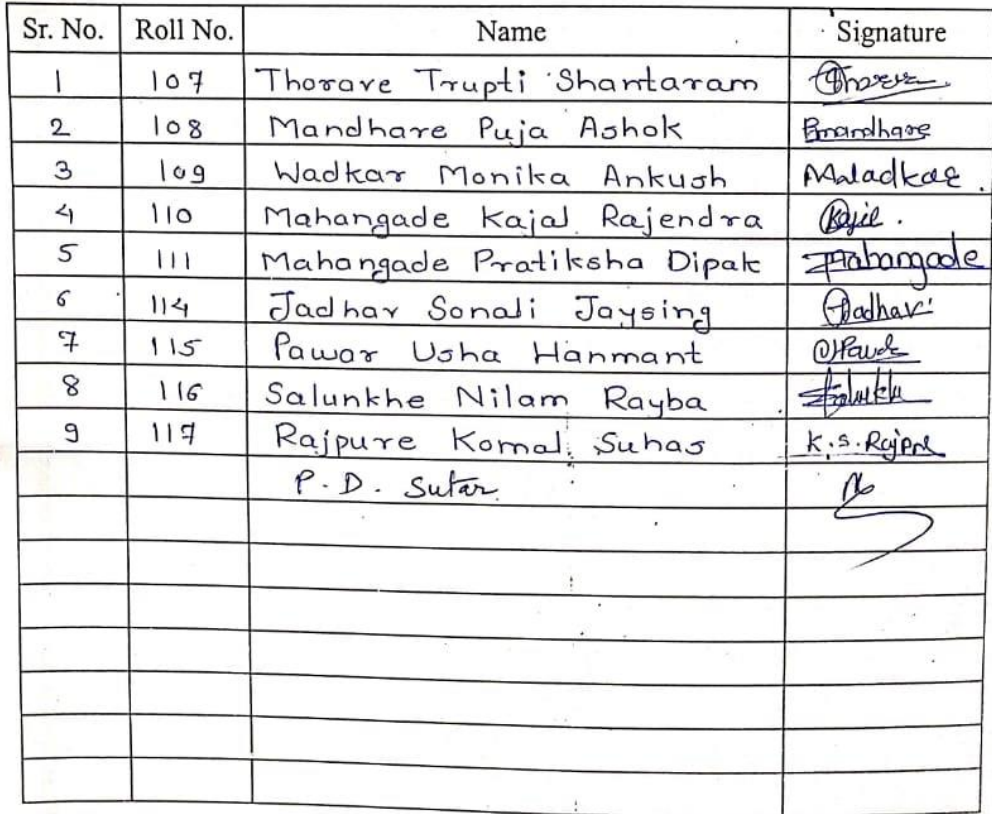 Sr. No. Roll No. Name Signature
1 107 Thorave Trupti Shantaram Thorave
2 108 Mandhare Puja Ashok Pmandhare
3 109 Wadkar Monika Ankush
4 110 Mahangade Kajal Rajendra
5 111 Mahangade Pratiksha Dipak Mahangade
6 114 Jadhav Sonali Jaysing Jadhav
7 115 Pawar Usha Hanmant
8 116 Salunkhe Nilam Rayba
9 117 Rajpure Komal Suhas K.S. Rajpure
P. D. Sutar